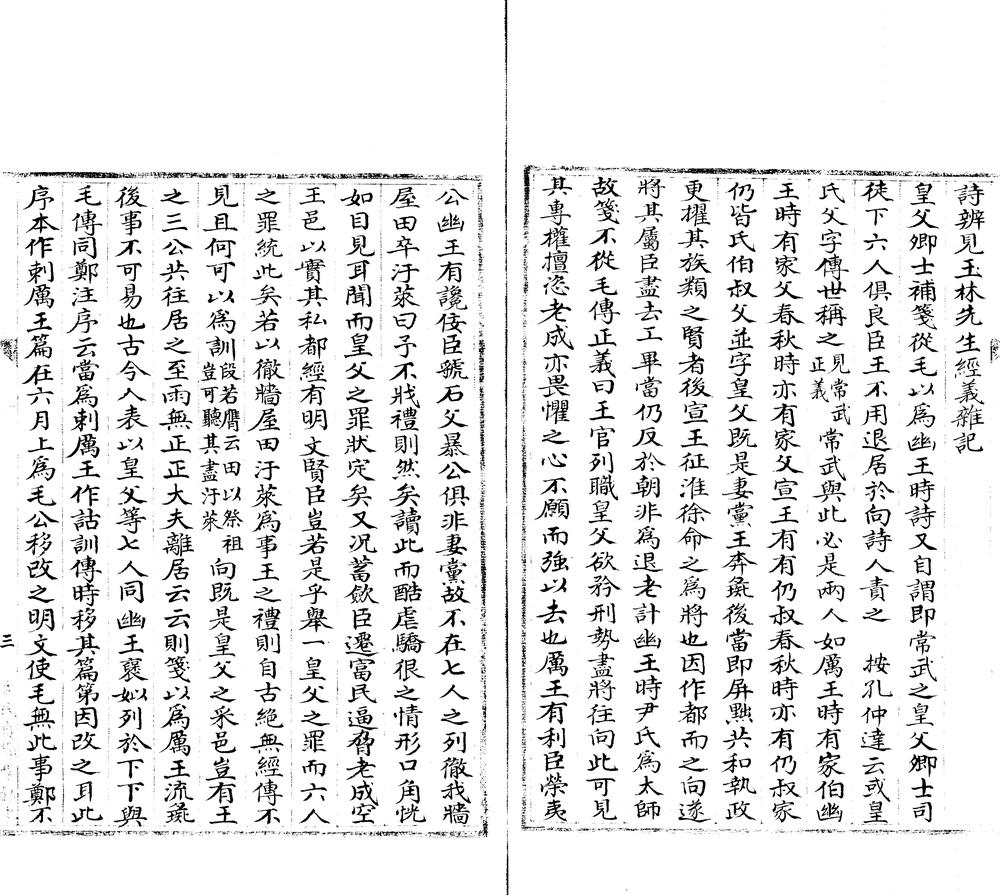 詩辨見玉林先生經義雜記
皇父卿士補箋從毛以爲幽王時詩又自謂即常武之皇父卿士司
徒下六人俱良臣王不用退居於向詩人責之　按孔仲達云或皇
氏父字傳世稱之見常武正義常武與此必是兩人如厲王時有家伯幽
王時有家父春秋時亦有家父宣王有有仍叔春秋時亦有仍叔家
仍皆氏伯叔父並字皇父既是妻黨王奔彘後當即屏黜共和執政
更擢其族類之賢者後宣王征淮徐命之爲將也因作都而之向遂
將其屬臣盡去工畢當仍反於朝非爲退老計幽王時尹氏爲太師
故箋不從毛傳正義曰王官列職皇父欲矜刑勢盡將往向此可見
其專權擅恣老成亦畏懼之心不願而強以去也厲王有利臣榮夷
公幽王有讒佞臣虢石父暴公俱非妻黨故不在七人之列徹我牆
屋田卒汙萊曰予不戕禮則然矣讀此而酷虐驕很之情形口角恍
如目見耳聞而皇父之罪狀定矣又況蓄歛臣遷富民逼脅老成空
王邑以實其私都經有明文賢臣豈若是乎舉一皇父之罪而六人
之罪統此矣若以徹牆屋田汙萊爲事王之禮則自古絶無經傳不
見且何可以爲訓段若膺云田以祭祖豈可聽其盡汙萊向既是皇父之采邑豈有王
之三公共往居之至雨無正正大夫離居云云則箋以爲厲王流彘
後事不可易也古今人表以皇父等七人同幽王襃姒列於下下與
毛傳同鄭注序云當爲刺厲王作詁訓傳時移其篇第因改之耳此
序本作刺厲王篇在六月上爲毛公移改之明文使毛無此事鄭不
三